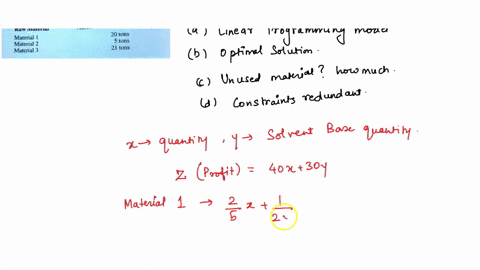 Material 1 20 tons
Material 2 5 tons
Material 3 21 tons
(a) Linear Programming model
(b) Optimal Solution.
(c) Unused material? how much.
(d) Constraints redundant.
x → quantity, y → Solvent Base quantity.
Z (Profit) = 40x+30y
Material 1 → 2/5 x + 1/2